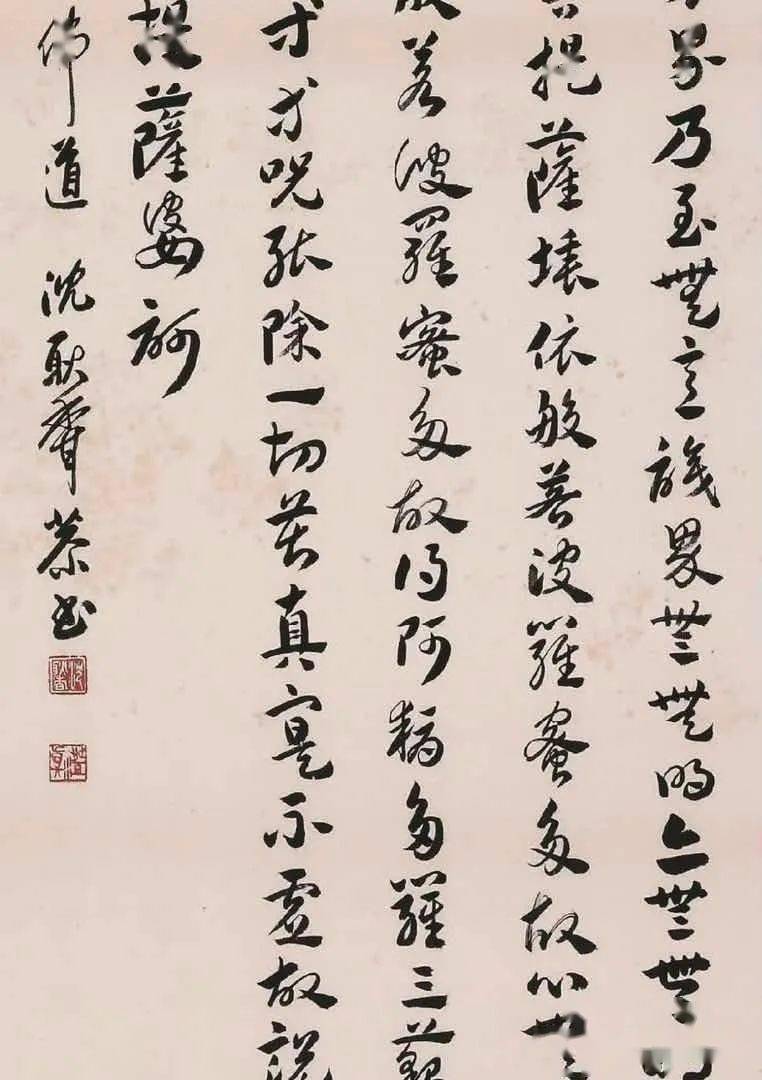 界乃至無意識界無無明亦無無
提薩埵依般若波羅蜜多故心無
般若波羅蜜多故得阿耨多羅三藐
等等咒能除一切苦真實不虛故說
提薩婆訶
佛道 沈耿 恭書